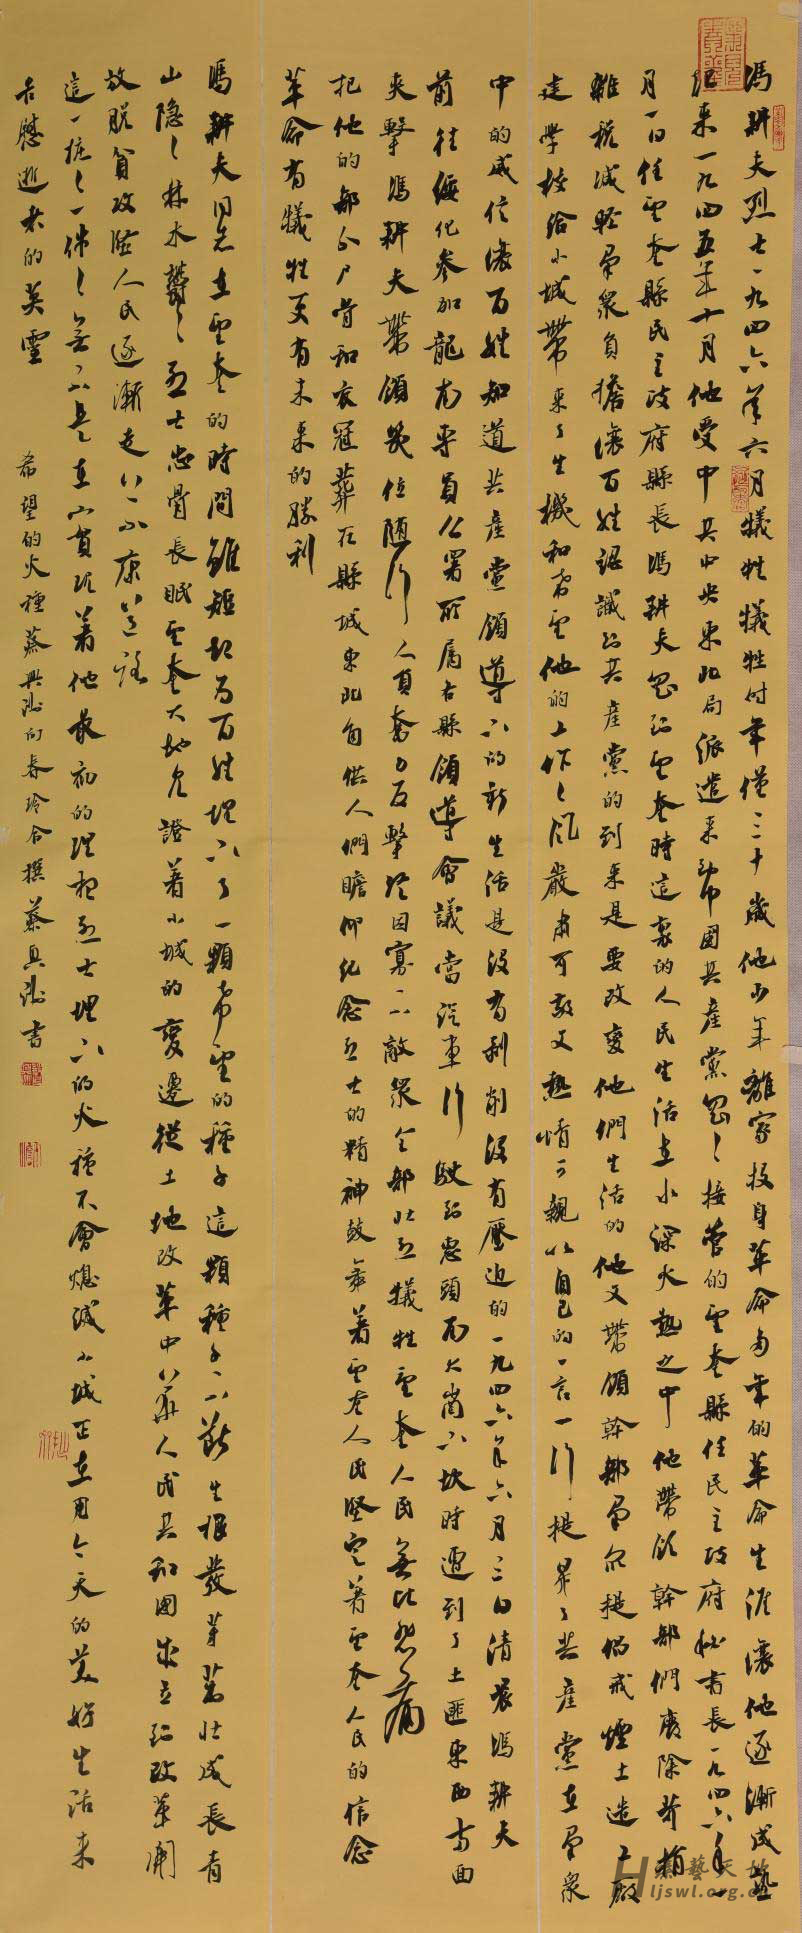 馮耕夫烈士一九四六年六月犧牲犧牲時年僅三十歲他少年離家投身革命多年的革命生涯讓他逐漸成熟
起來一九四五年十月他受中共中央東北局派遣來帶國共產黨接管的望奎縣任民主政府秘書長一九四六年一
月一日任望奎縣民主政府縣長馮耕夫到望奎時這裏的人民生活在水深火熱之中他帶領幹部們廢除苛捐
雜稅減輕羣衆負擔讓百姓認識到共產黨的到來是要改變他們生活的他又帶領幹部羣衆提倡戒煙土造工廠
建學校給小城帶來了生機和希望他的工作作風嚴肅可敬又熱情可親以自己的一言一行提昇了共產黨在羣衆
中的威信讓百姓知道共產黨領導下的新生活是沒有剥削沒有壓迫的一九四六年六月三日清晨馮耕夫
前往綏化參加龍南專員公署所屬各縣領導會議當汽車行駛到惠頭西大崗下坎時遭到了土匪東西方面
夾擊馮耕夫帶領幾位隨行人員奮力反擊終因寡不敵衆全部壯烈犧牲望奎人民無比悲痛
把他的部分尸骨和衣冠葬在縣城東北角供人們瞻仰紀念烈士的精神鼓舞着望奎人民堅定着望奎人民的信念
革命有犧牲更有未來的勝利
馮耕夫同志在望奎的時間雖短却爲百姓埋下了一顆希望的種子這顆種子不斷生根發芽茁壯成長青
山隱隱林木鬱鬱烈士忠骨長眠望奎大地見證着小城的變遷從土地改革中華人民共和國成立到改革開
放脱貧攻堅人民逐漸走小康道路
這一樁樁一件件無不是在實現着他最初的理想烈士埋下的火種不會熄滅小城正在用今天的美好生活來
告慰逝者的英靈
希望的火種蔡興洲向春玲合撰蔡興洲書
龍藝天地
ljswl.org.cn